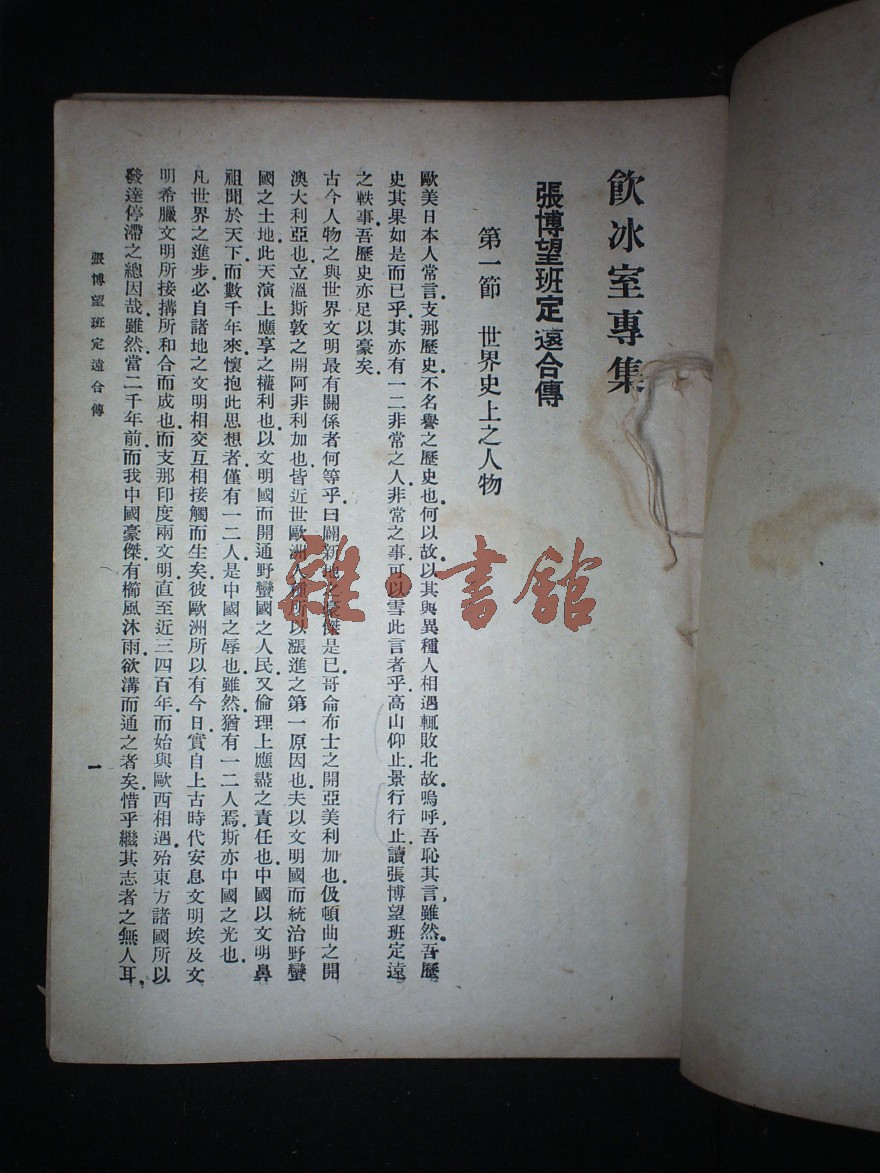 飲冰室專集
張博望班定遠合傳
第一節 世界史上之人物
歐美日本人常言支那歷史不名譽之歷史也何以故以其與異種人相遇輒敗北故嗚呼吾恥其言雖然吾歷
史其果如是而已乎其亦有一二非常之人非常之事可以雪此言者乎高山仰止景行行止讀張博望班定遠
之軼事吾歷史亦足以豪矣
古今人物之與世界文明最有關係者何等乎曰闢新地之豪傑是已哥侖布士之開亞美利加也伋頓曲之開
澳大利亞也立溫斯敦之開阿非利加也皆近世歐洲人種所以漲進之第一原因也夫以文明國而統治野蠻
國之土地此天演上應享之權利也以文明國而開通野蠻國之人民又倫理上應盡之責任也中國以文明鼻
祖聞於天下而數千年來懷抱此思想者僅有一二人是中國之辱也雖然猶有一二人焉斯亦中國之光也
凡世界之進步必自諸地之文明相交互相接觸而生矣彼歐洲所以有今日實自上古時代安息文明埃及文
明希臘文明所接搆所和合而成也而支那印度兩文明直至近三四百年而始與歐西相遇殆東方諸國所以
發達停滯之總因哉雖然當二千年前而我中國豪傑有櫛風沐雨欲溝而通之者矣惜乎繼其志者之無人耳
張博望班定遠合傳
一
雜·書館